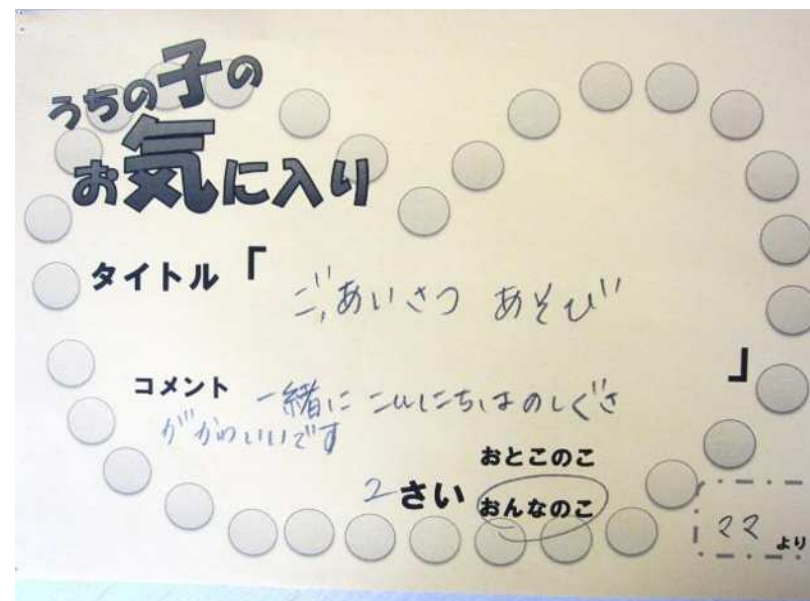 うちの子の
お気に入り
タイトル「
ごあいさつ あそび
」
コメント 一緒に こんにちはのしぐさ
がかわいいです
おとこのこ
2さい おんなのこ
ママ より